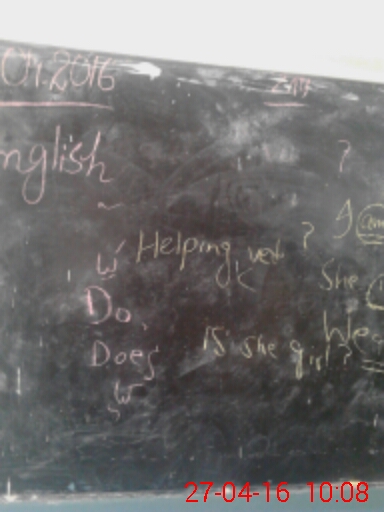 .04.2016
nglish
?
Helping ver ?
I am
She
w
Do,
We
Does
Is she girl ?
w
27-04-16 10:08